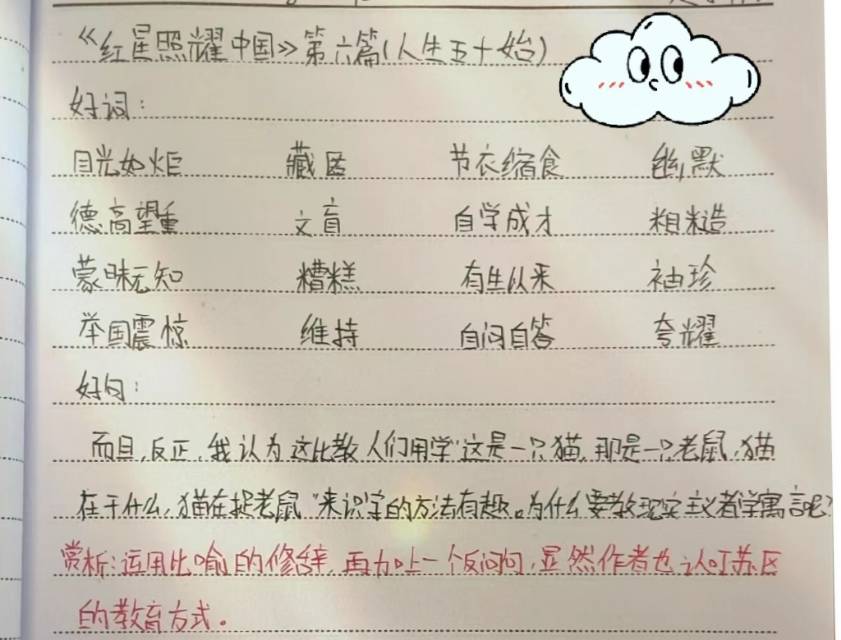 《红星照耀中国》第六篇(人生五十始)
好词:
目光如炬 藏匿 节衣缩食 幽默
德高望重 文盲 自学成才 粗糙
蒙昧无知 糟糕 有生以来 袖珍
举国震惊 维持 自问自答 夸耀
好句:
而且,反正,我认为这比教人们用学"这是一只猫,那是一只老鼠,猫
在干什么,猫在捉老鼠"来识字的方法有趣。为什么要教现实主义者学寓言呢?
赏析:运用比喻的修辞,再加上一个反问问,显然作者也认可苏区
的教育方式。